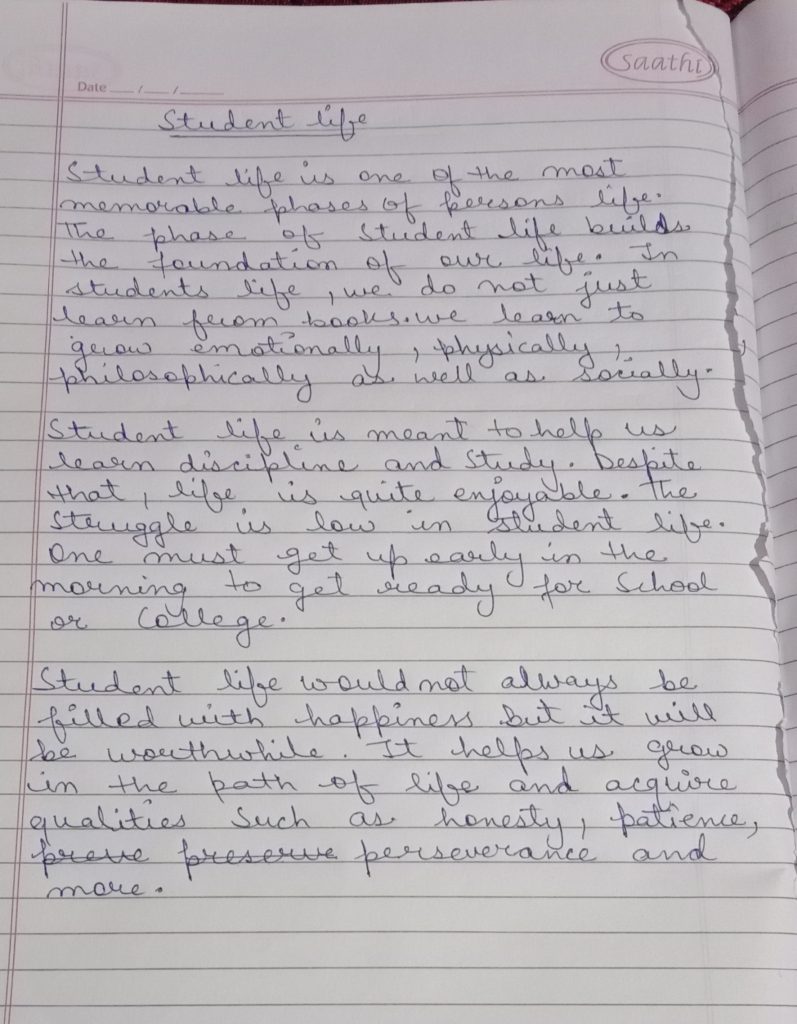 saathi
Date __/__/____
Student life
Student life is one of the most
memorable phases of persons life.
The phase of Student life builds
the foundation of our life. In
students life , we do not just
learn from books. we learn to
grow emotionally , physically ,
philosophically as well as socially.
Student life is meant to help us
learn discipline and Study. Despite
that , life is quite enjoyable. The
Struggle is low in student life.
One must get up early in the
morning to get ready for School
or College.
Student life would not always be
filled with happiness but it will
be worthwhile. It helps us grow
in the path of life and acquire
qualities Such as honesty, patience,
preve preserve perseverance and
more.